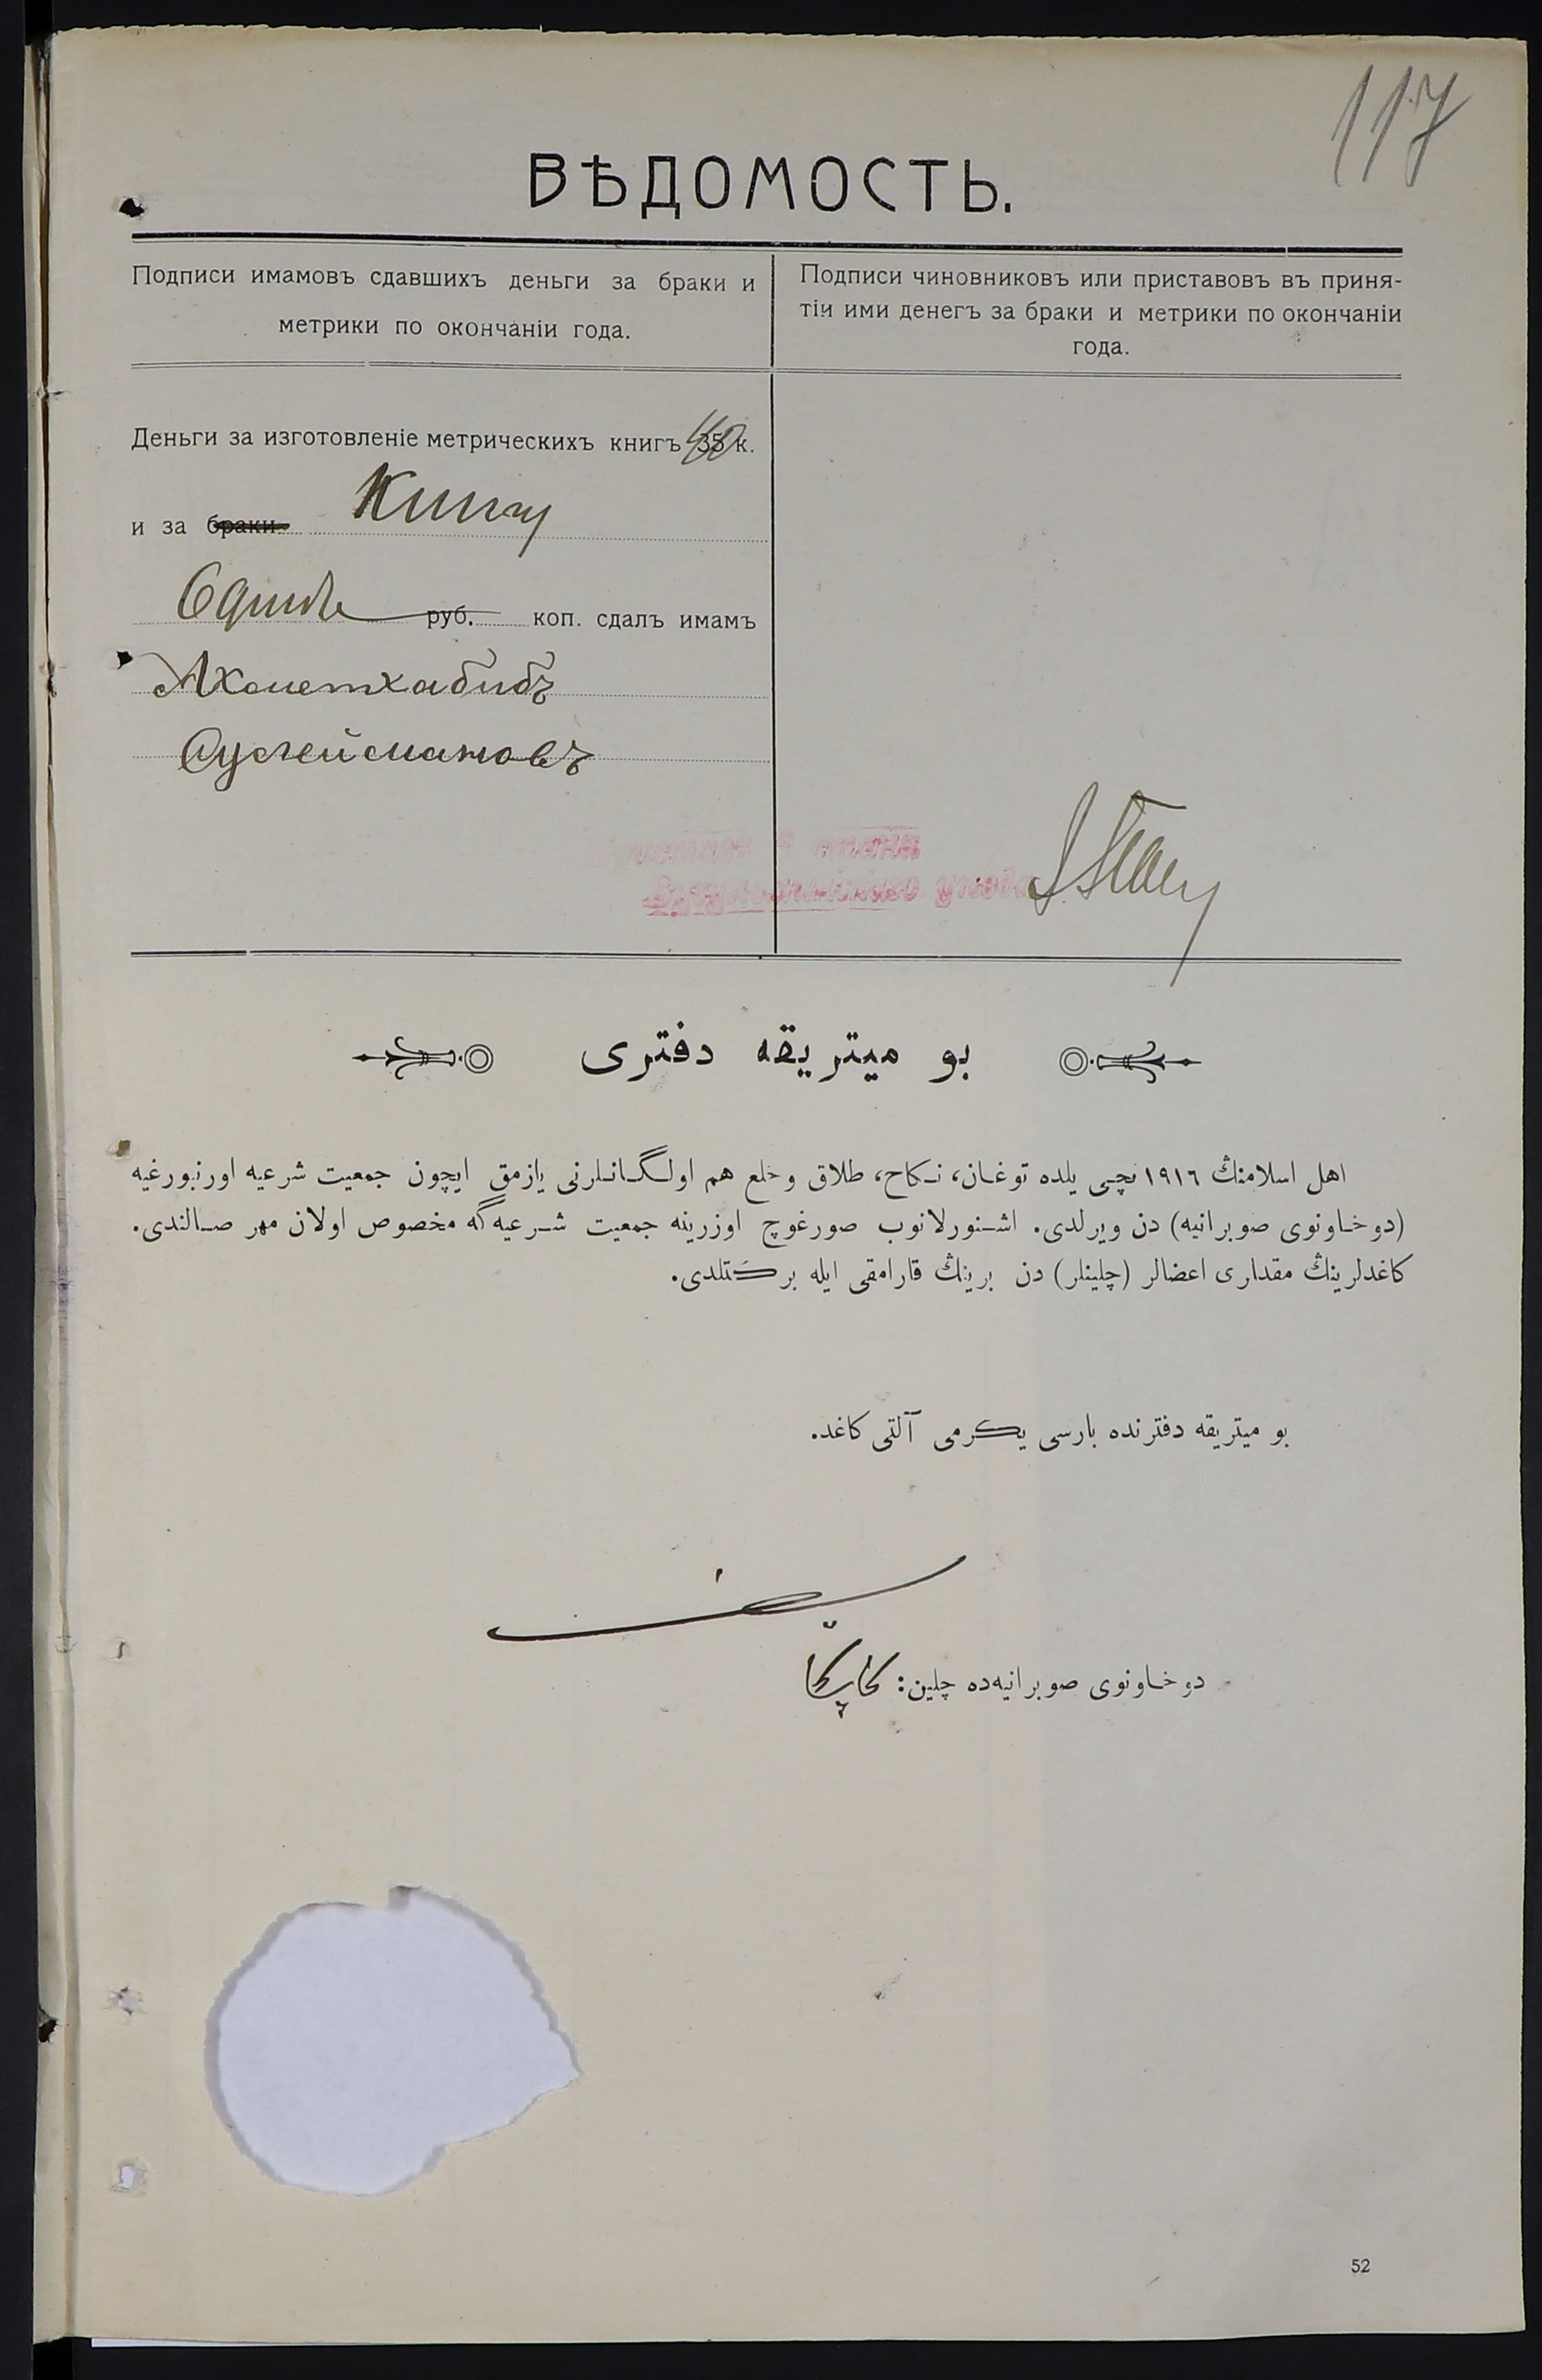 117
ВѢДОМОСТЬ.
Подписи имамовъ сдавшихъ деньги за браки и
метрики по окончаніи года.
Подписи чиновниковъ или приставовъ въ приня-
тіи ими денегъ за браки и метрики по окончаніи
года.
Деньги за изготовленіе метрическихъ книгъ 35 к.
и за браки. Книгу
руб. коп. сдалъ имамъ
Ахметхабибъ
Сулеймановъ
стана
уѣзда
بو ميتريقه دفتری
اهل اسلامنڭ ١٩١٦ نچی يلده توغان، نكاح، طلاق وخلع هم اولگانلرنی يازمق ايچون جمعيت شرعيه اورنبورغيه
(دوخاونوی صوبرانيه) دن ويرلدی. اشنورلانوب صورغوچ اوزرينه جمعيت شرعيه‌گه مخصوص اولان مهر صالندی.
كاغدلرينڭ مقداری اعضالر (چلينلر) دن برينڭ قارامقی ايله بركتلدی.
بو ميتريقه دفترنده بارسی يكرمی آلتی كاغد.
دوخاونوی صوبرانيه‌ده چلين:
52